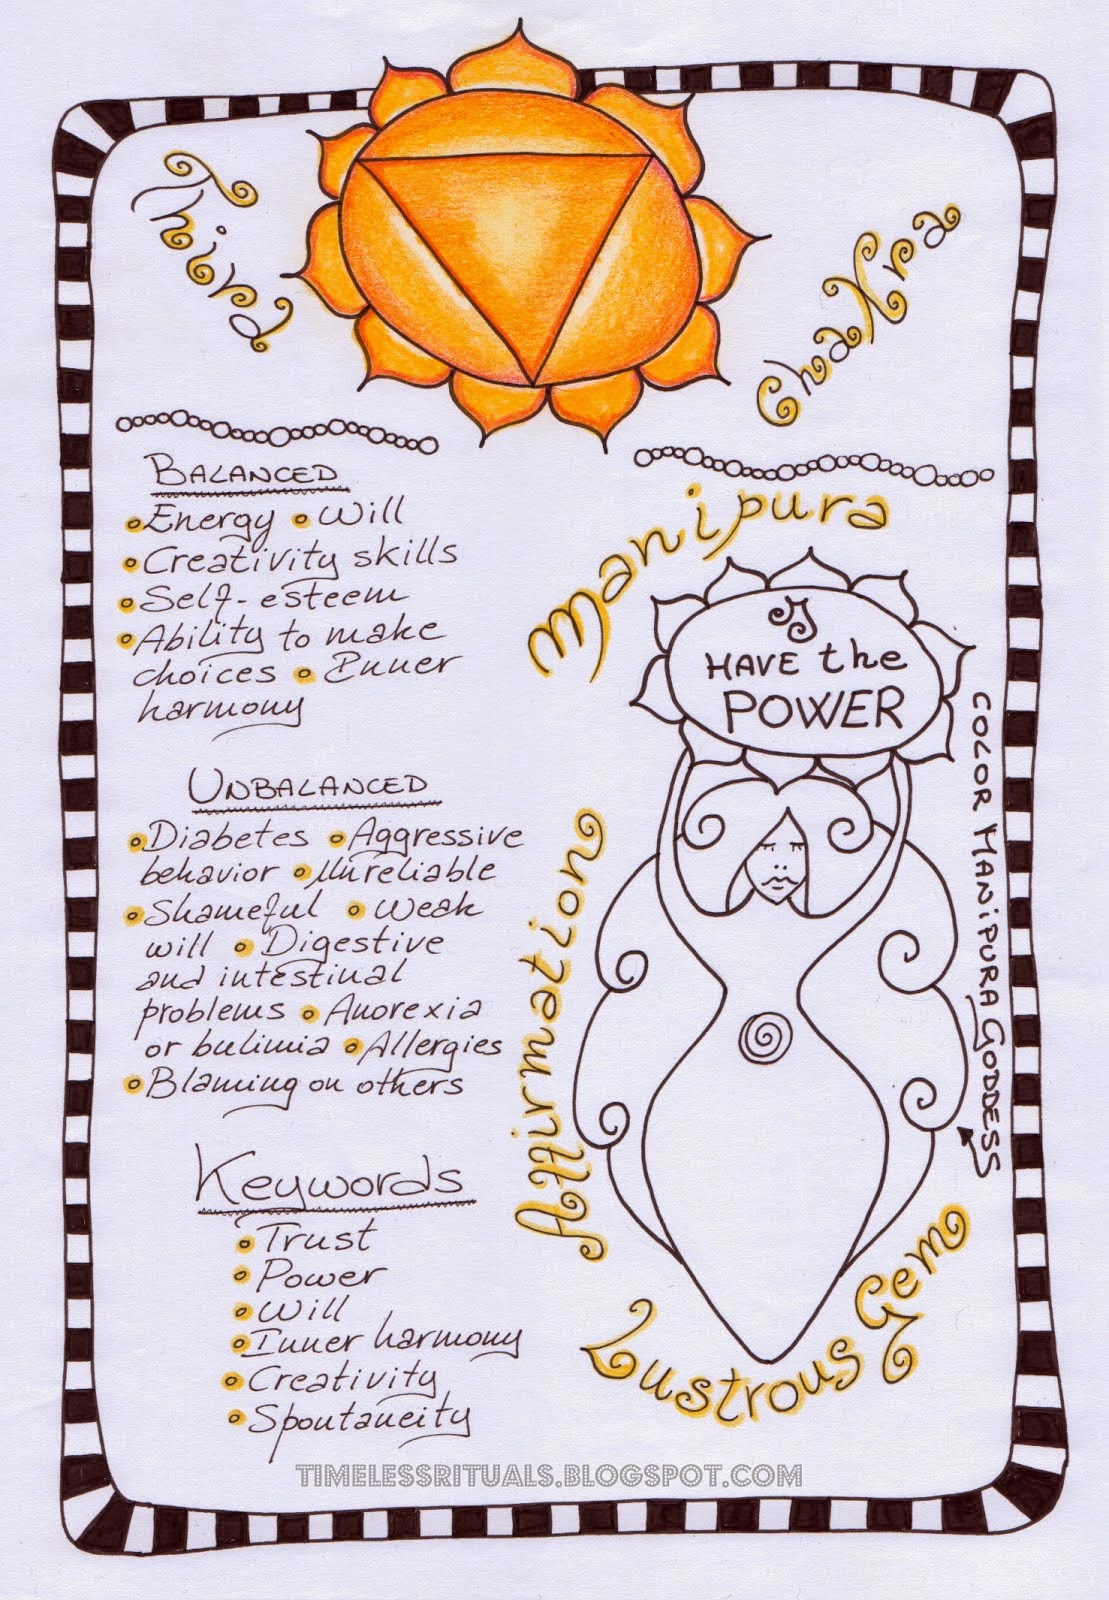 Third
Chakra
Balanced
Energy • Will
• Creativity skills
• Self-esteem
• Ability to make
choices • Inner
harmony
Unbalanced
• Diabetes • Aggressive
behavior • Unreliable
• Shameful • Weak
will • Digestive
and intestinal
problems • Anorexia
or bulimia • Allergies
• Blaming on others
Keywords
• Trust
• Power
• Will
• Inner harmony
• Creativity
• Spontaneity
Manipura
I
HAVE the
POWER
Affirmation
COLOR MANiPURA GODDESS
Lustrous Gem
TIMELESSRITUALS.BLOGSPOT.COM